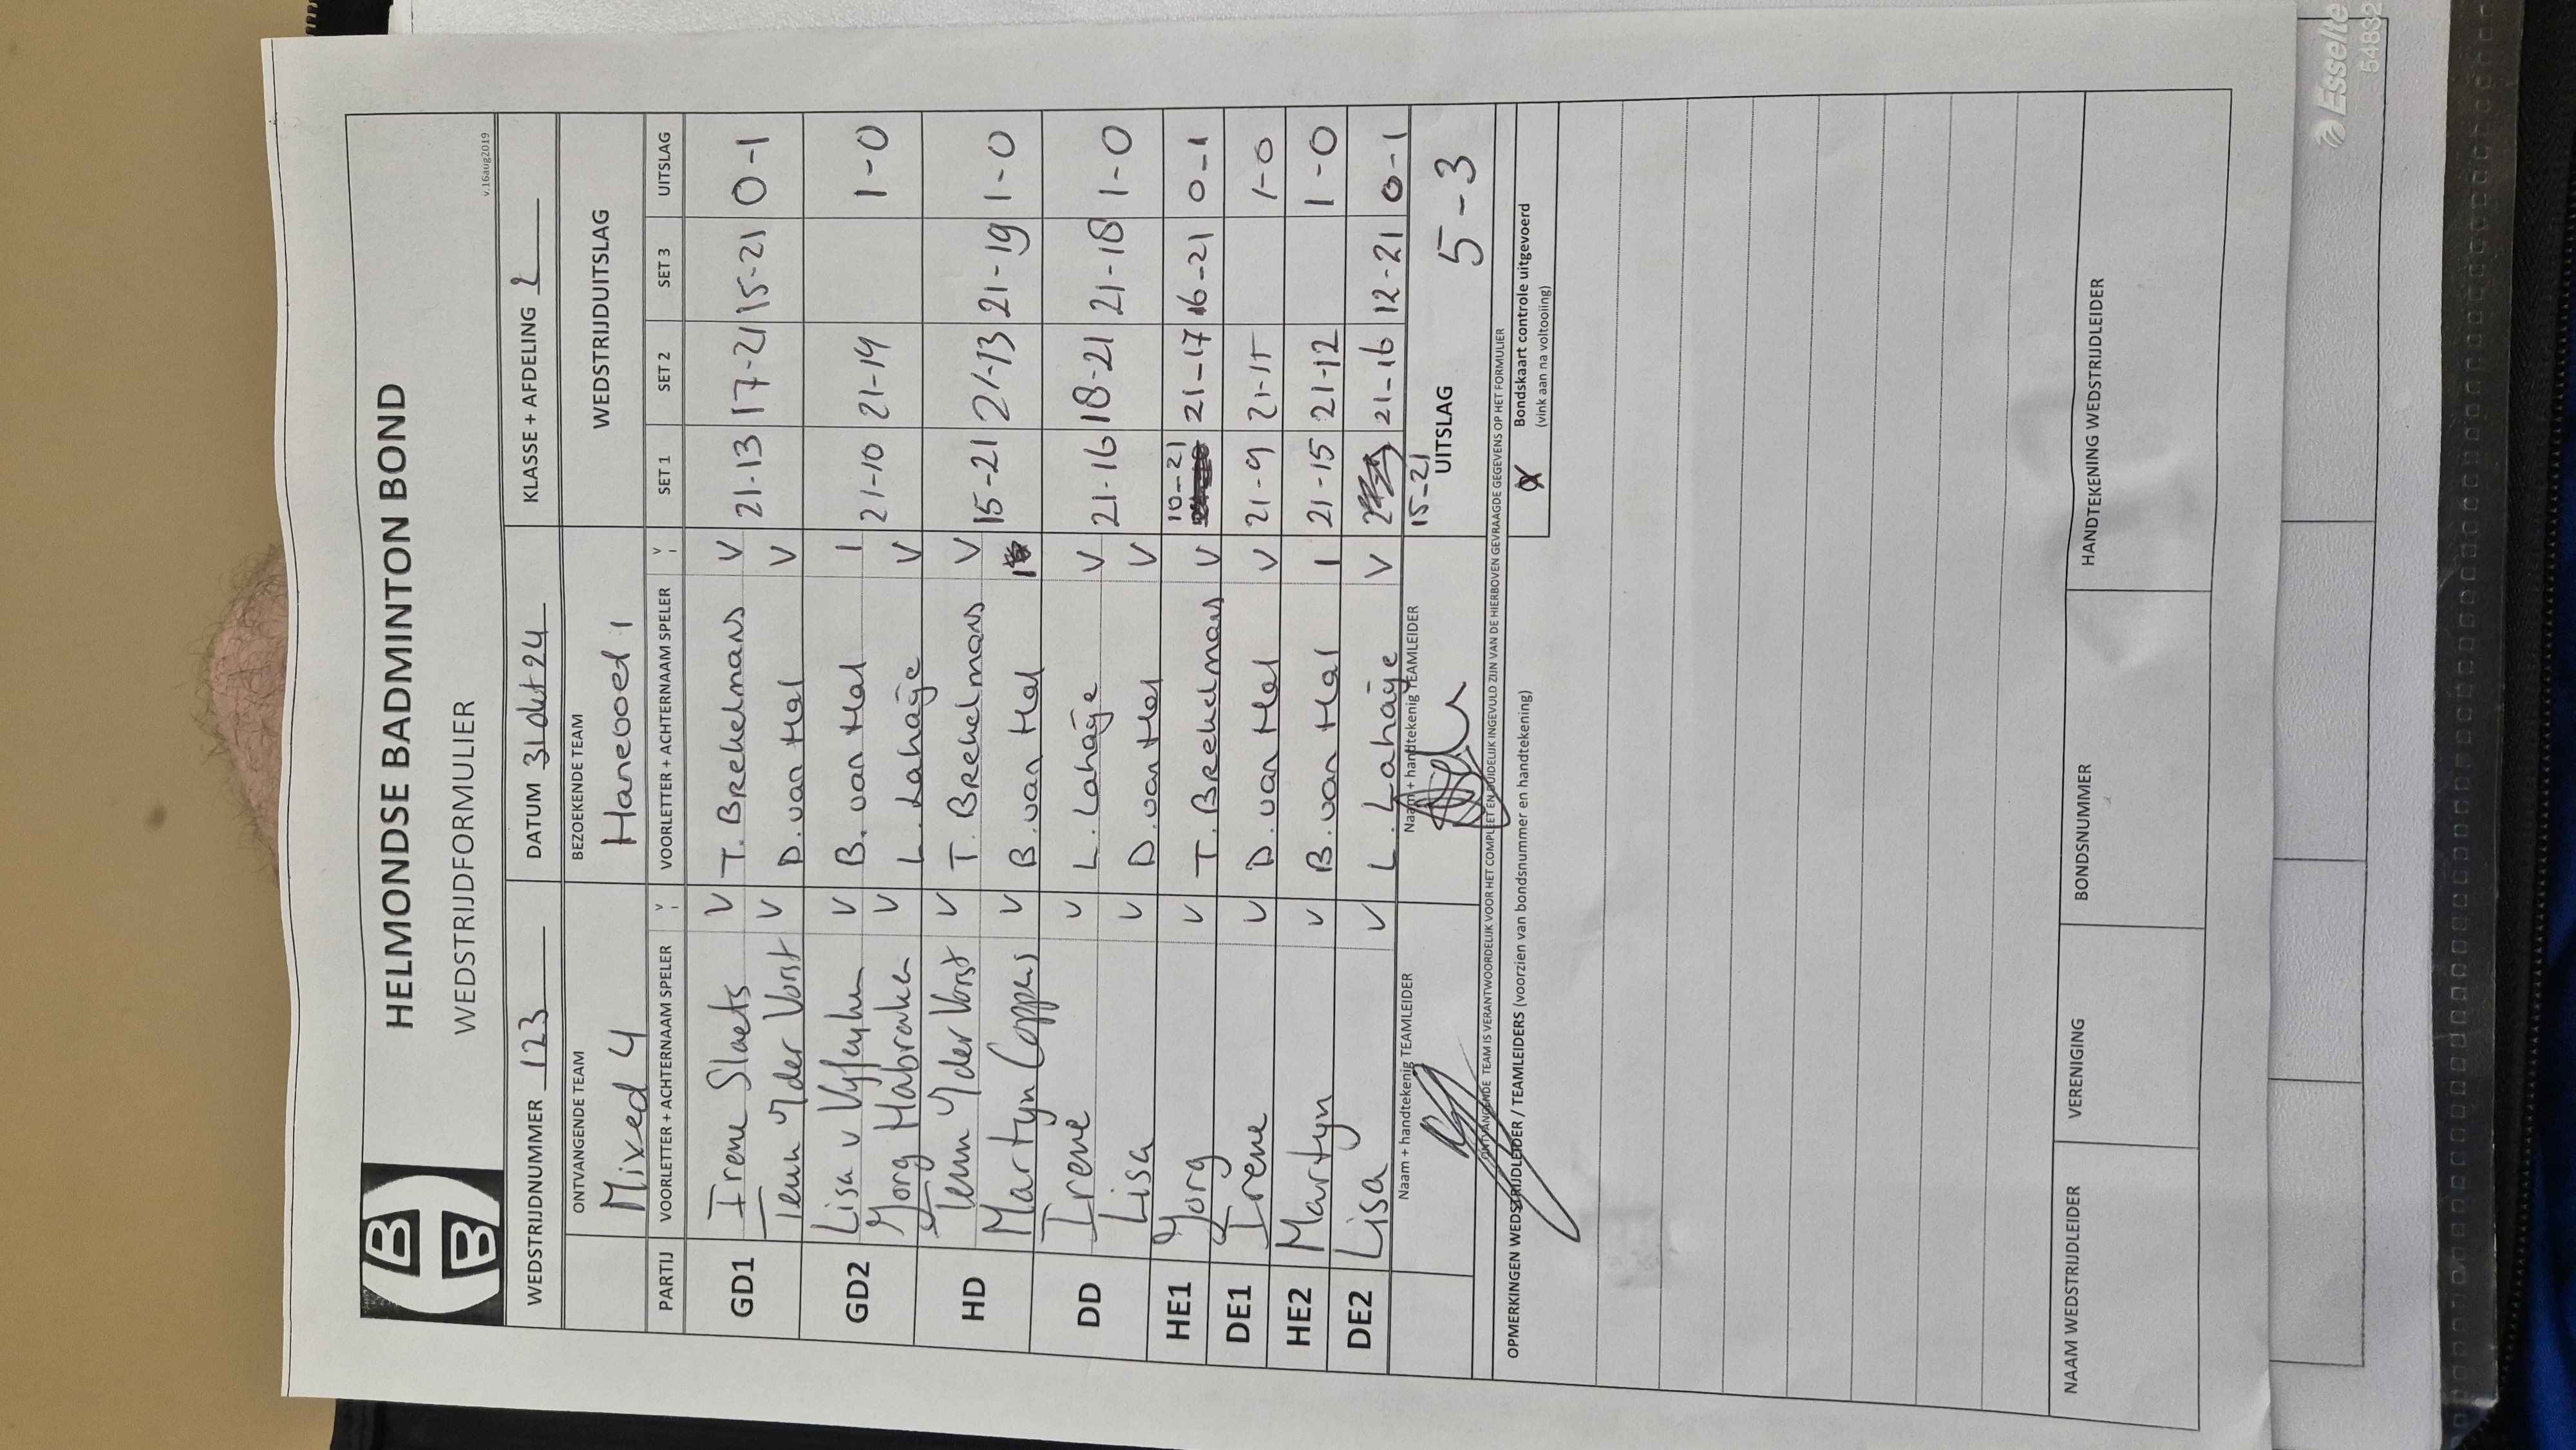 HELMONDSE BADMINTON BOND
WEDSTRIJDFORMULIER
v.16aug2019
WEDSTRIJDNUMMER 123 DATUM 31 okt 24 KLASSE + AFDELING 2
ONTVANGENDE TEAM BEZOEKENDE TEAM WEDSTRIJDUITSLAG
Mixed 4 Hanevoet 1
PARTIJ VOORLETTER + ACHTERNAAM SPELER V VOORLETTER + ACHTERNAAM SPELER V SET 1 SET 2 SET 3 UITSLAG
GD1 Irene Slaets V T. Brekelmans V 21-13 17-21 15-21 0-1
Teun v der Vorst V D. van Hal V
GD2 Lisa v V B. van Hal 1 21-10 21-14 1-0
Jorg Habraken V L. Lahaije V
HD Teun v der Vorst V T. Brekelmans V 15-21 21-13 21-19 1-0
Martyn Coppens V B. van Hal 1
DD Irene V L. Lahaije V 21-16 18-21 21-18 1-0
Lisa V D. van Hal V
HE1 Jorg V T. Brekelmans V 10-21 21-17 16-21 0-1
DE1 Irene V D. van Hal V 21-9 21-11 1-0
HE2 Martyn V B. van Hal 1 21-15 21-12 1-0
DE2 Lisa V L. Lahaije V 21-16 12-21 0-1
15-21
Naam + handtekenig TEAMLEIDER Naam + handtekenig TEAMLEIDER UITSLAG 5-3
ONTVANGENDE TEAM IS VERANTWOORDELIJK VOOR HET COMPLEET EN DUIDELIJK INGEVULD ZIJN VAN DE HIERBOVEN GEVRAAGDE GEGEVENS OP HET FORMULIER
OPMERKINGEN WEDSTRIJDLEIDER / TEAMLEIDERS (voorzien van bondsnummer en handtekening)
Bondskaart controle uitgevoerd
(vink aan na voltooiing)
NAAM WEDSTRIJDLEIDER VERENIGING BONDSNUMMER HANDTEKENING WEDSTRIJDLEIDER
Esselte
54832